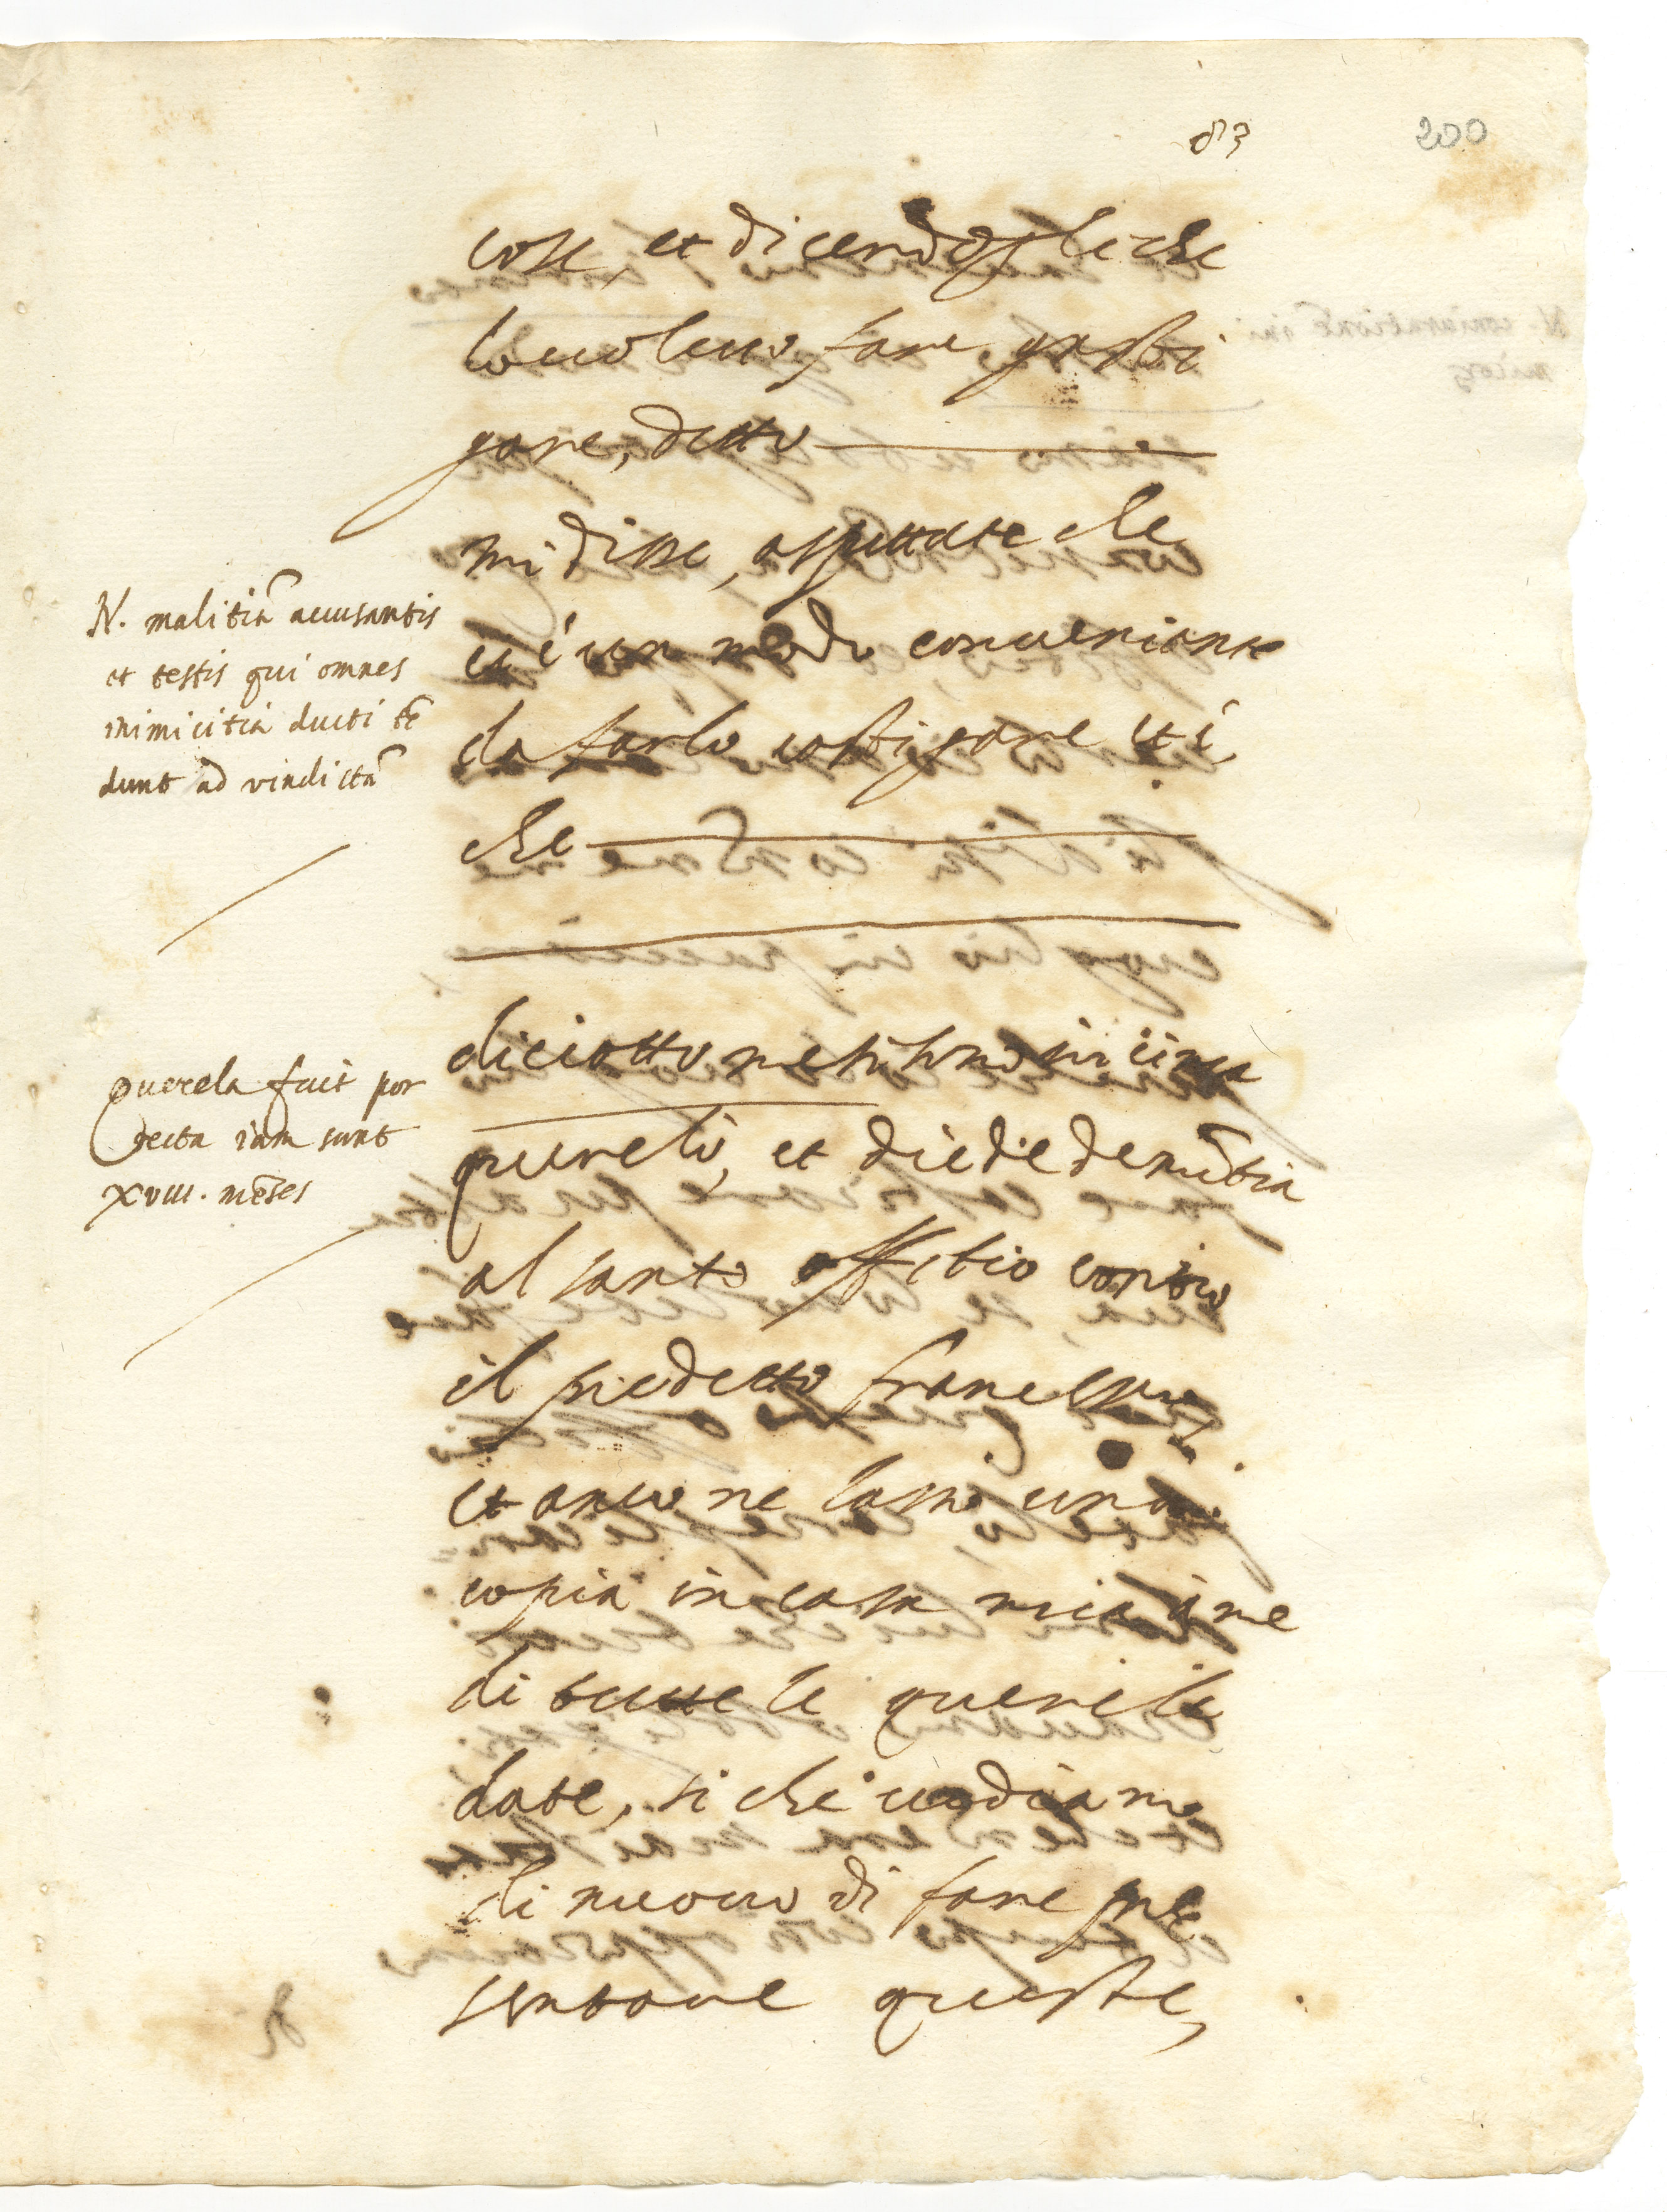 83
200
cose, et dicendogli che
lo uoleuo fare gasti
gare, detto
mi disse, aspettate che
ci è un modo conueniente
da farlo castigare et è
che
N. malitiã accusantis
et testis qui omnes
inimicitia ducti tẽ
dunt ad vindictã
diciotto mesi sono in circa
querelò, et diede denũtia
al santo offitio contro
il predetto francesco,
et anco ne lassò una
copia in casa mia à me
di tutte le querele
date, si che
di nuouo di fare pre
sentare queste,
Querela fuit por
recta iam sunt
XVIII. mẽses